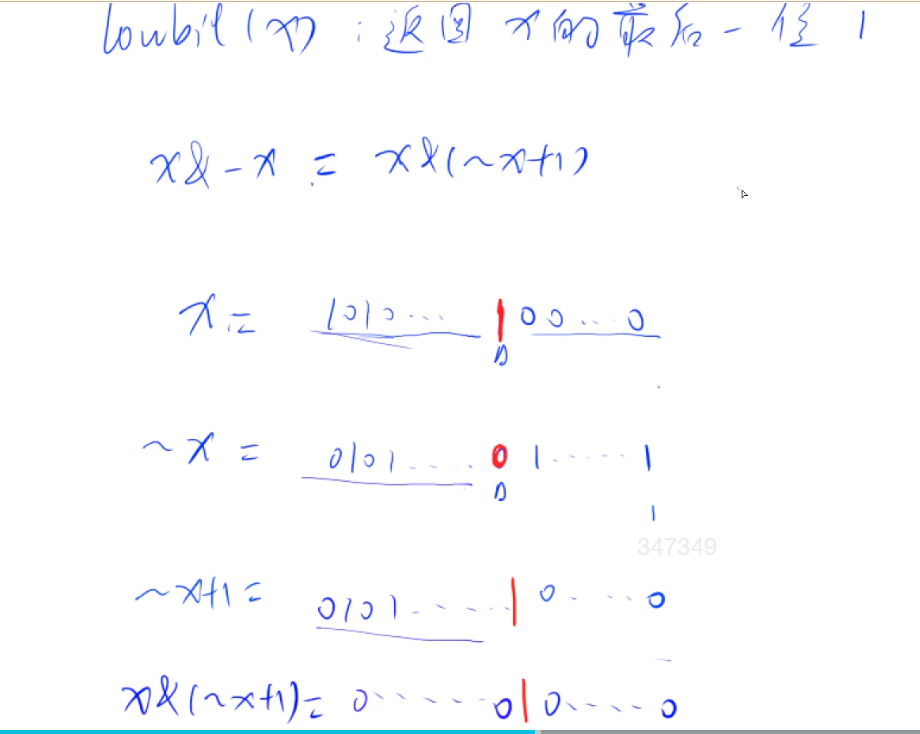 lowbit(x) : 返回 x的最后一位1
x&-x = x&(~x+1)
x = 1010... 1 00...0
~x = 0101.... 0 1.....1
1
347349
~x+1 = 0101..... 1 0....0
x&(~x+1) = 0.....0 1 0.....0